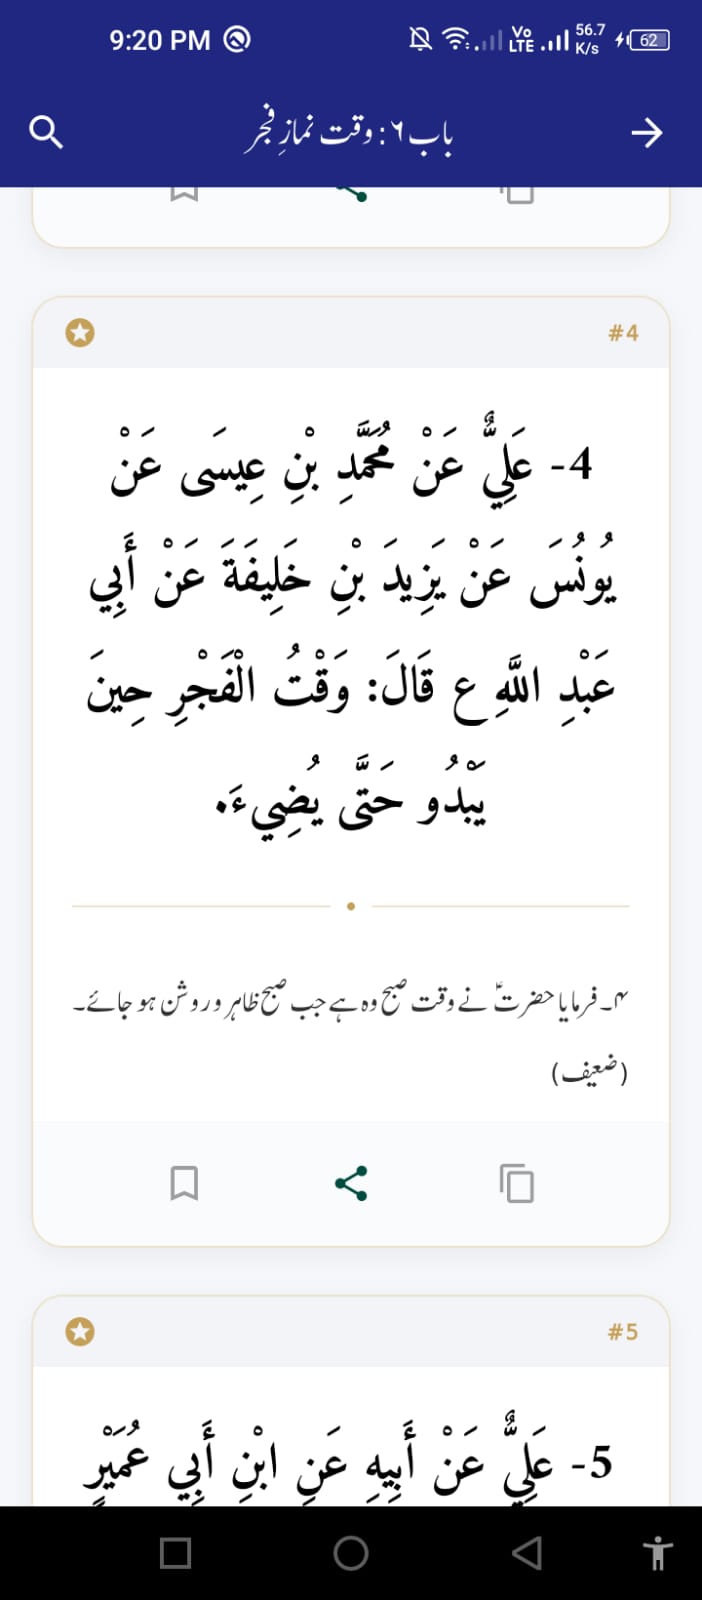 9:20 PM
Vo LTE
56.7 K/s
62
باب ۶: وقت نمازِ فجر
#4
4- عَلِيٌّ عَنْ مُحَمَّدِ بْنِ عِيسَى عَنْ
يُونُسَ عَنْ يَزِيدَ بْنِ خَلِيفَةَ عَنْ أَبِي
عَبْدِ اللَّهِ ع قَالَ: وَقْتُ الْفَجْرِ حِينَ
يَبْدُو حَتَّى يُضِيءَ.
۴۔ فرمایا حضرتؑ نے وقت صبح وہ ہے جب صبح ظاہر و روشن ہو جائے۔
(ضعیف)
#5
5- عَلِيٌّ عَنْ أَبِيهِ عَنِ ابْنِ أَبِي عُمَيْرٍ